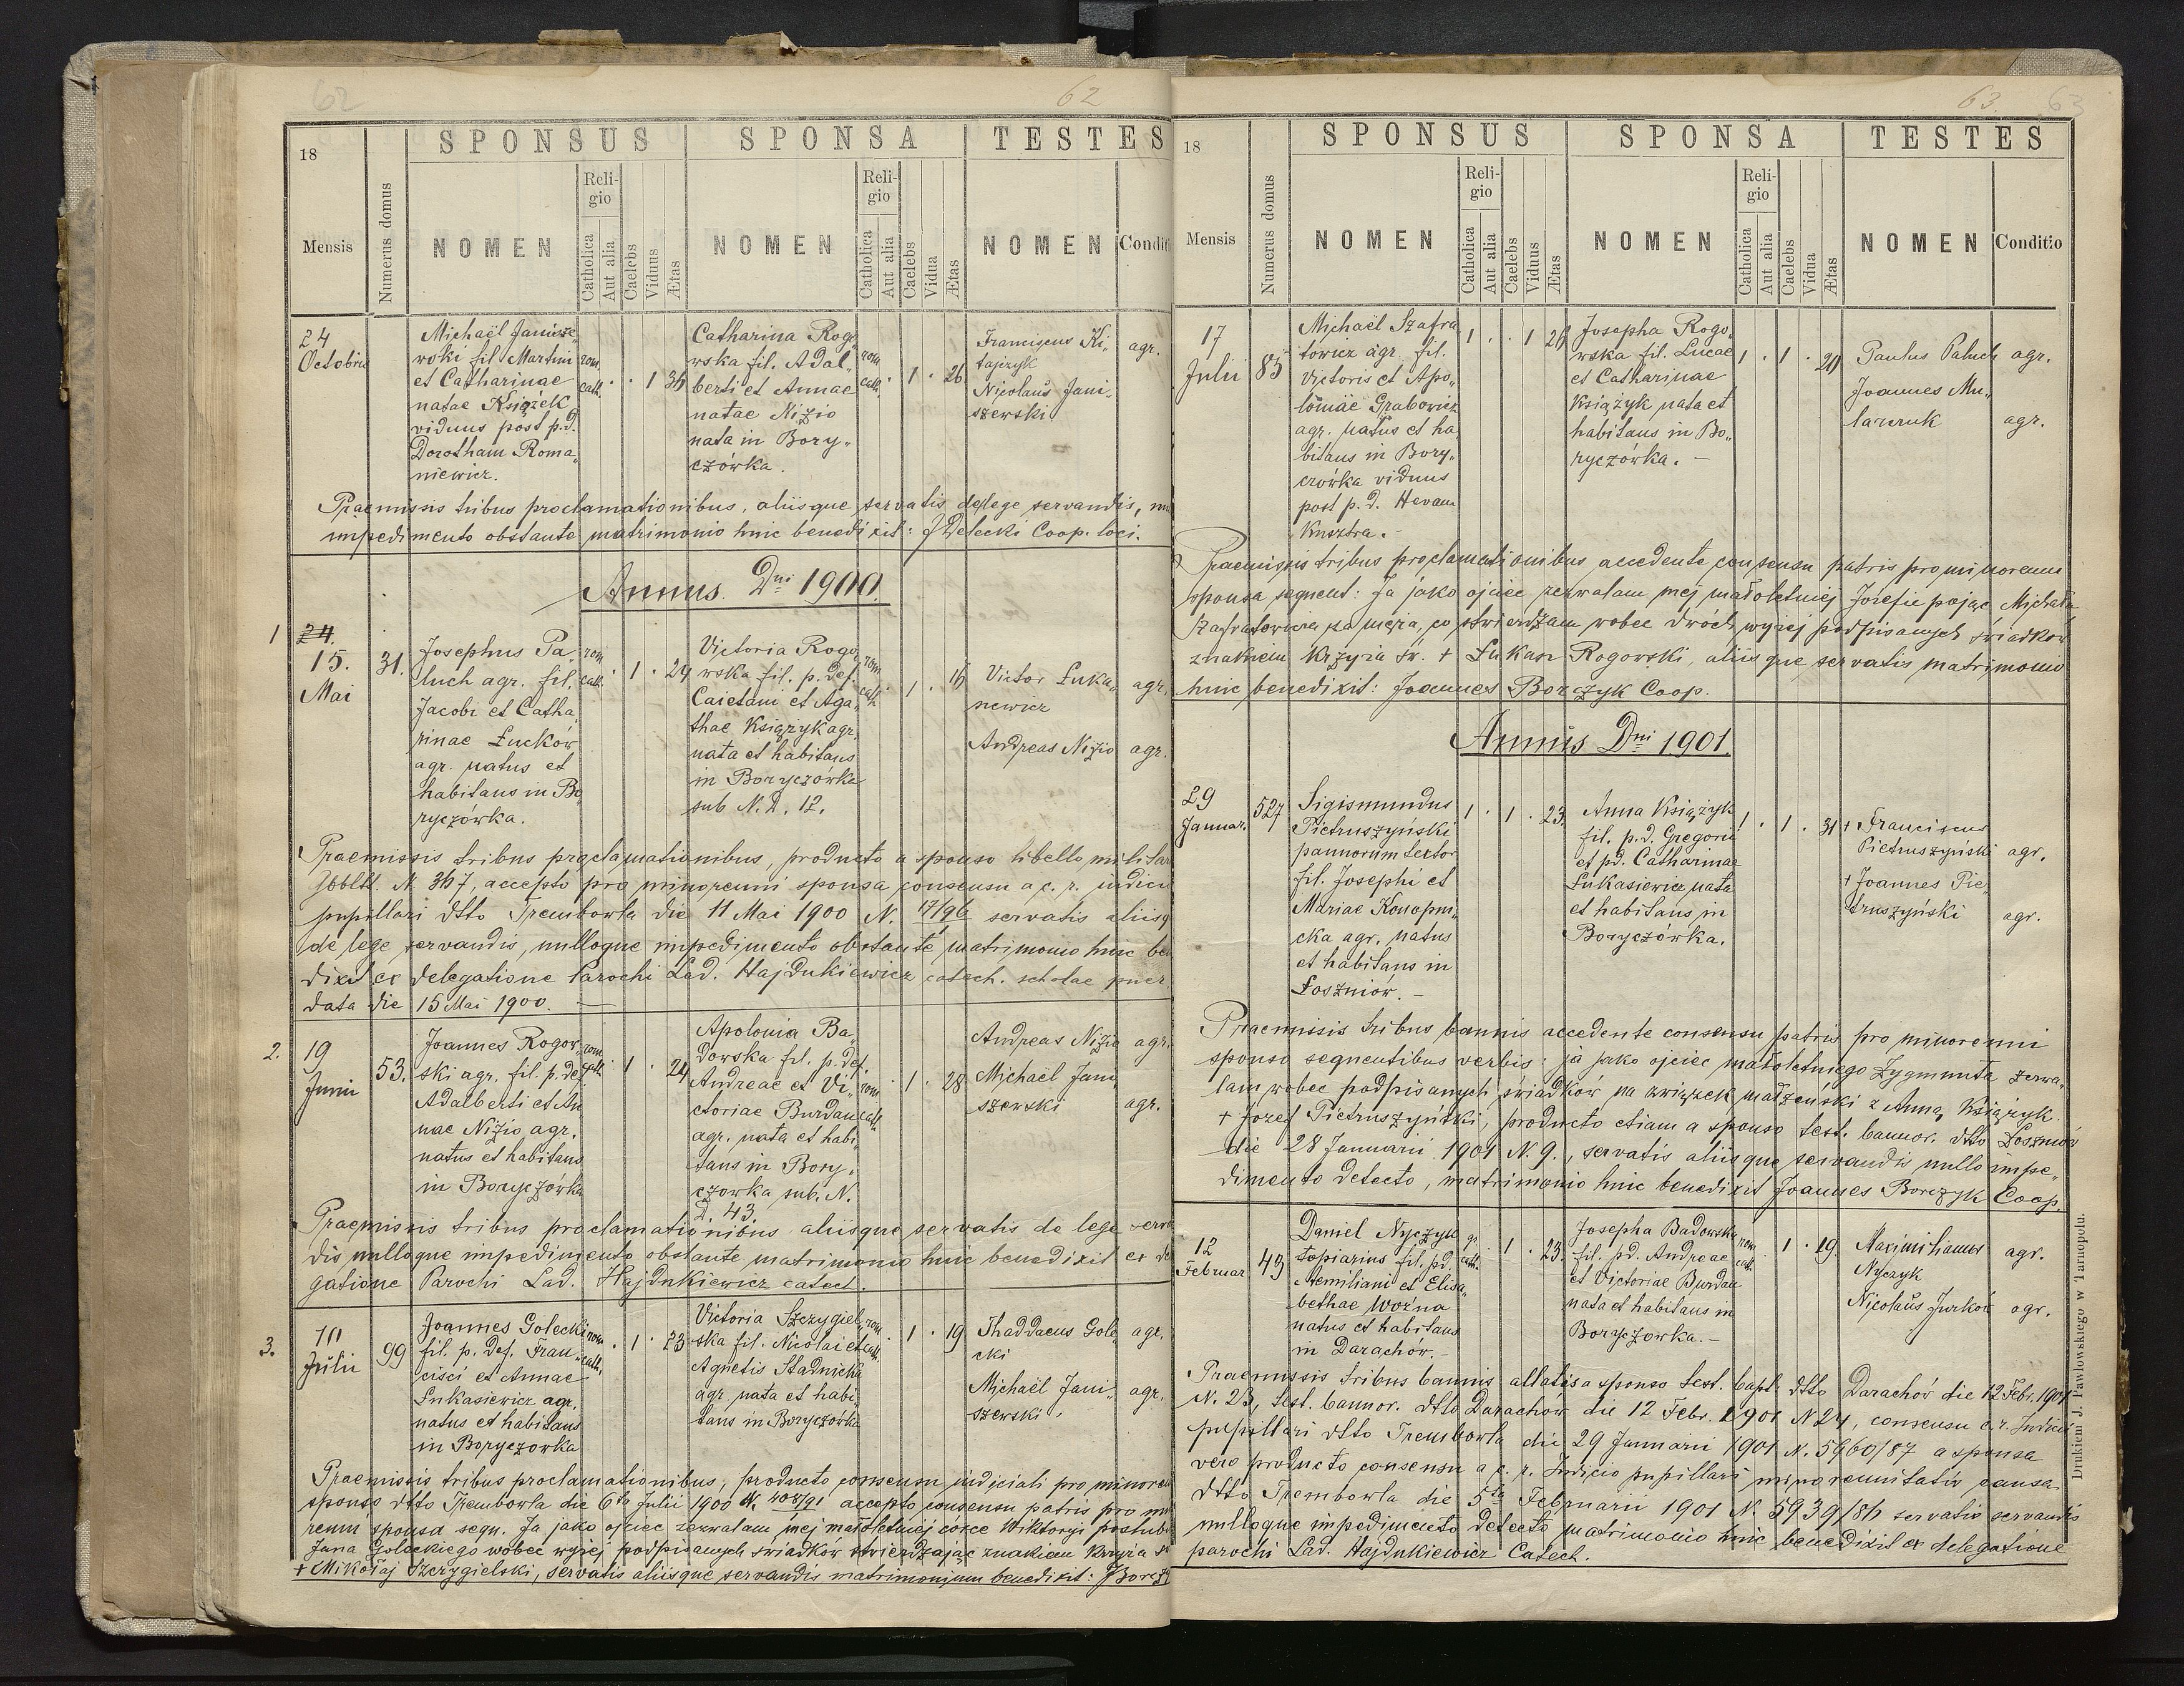 62
62
18
SPONSUS
SPONSA
TESTES
Mensis
Numerus domus
NOMEN
Religio
Catholica
Aut alia
Caelebs
Viduus
Ætas
NOMEN
Religio
Catholica
Aut alia
Caelebs
Vidua
Ætas
NOMEN
Conditi
24
Octobris
Michaël Janisze„
wski fil. Martini
et Catharinae
natae Książek
viduus post p. d.
Dorotham Roma„
niewicz.
rom.
cath.
1
36
Catharina Rogo
wska fil. Adal„
berti et Annae
natae Niżio
nata in Bory„
czówka.
rom.
cath.
1
26
Franciscus Ki„
tajczyk
agr.
Nicolaus Jani„
szewski
Praemissis tribus proclamationibus, aliisque servatis de lege servandis,
impedimento obstante matrimonio huic benedixit: J Delecki Coop. loci.
Annus Dni 1900.
1
24.
15.
Mai
31.
Josephus Pa„
luch agr. fil.
Jacobi et Catha„
rinae Łucków
agr. natus et
habitans in Bo„
ryczówka.
rom.
cath.
1
24
Victoria Rogo„
wska fil. p. def.
Caietani et Aga„
thae Książyk agr.
nata et habitans
in Boryczówka
sub N. D. 12.
rom.
cath.
1
16
Victor Łuka„
newicz
agr.
Andreas Niżio agr.
Praemissis tribus proclamationibus, producto a sponso libello militar
N. 367, accepto pro minorenni sponsa consensu a c. r. iudicio
pupillari dtto Trembowla die 11 Mai 1900 N. 17/96 servatis aliisq
de lege servandis, nulloque impedimento obstante matrimonio huic bene
dixit ex delegatione Parochi Lad. Hajdukiewicz catech. scholae puer.
data die 15 Mai 1900.
2.
19
Junii
53.
Joannes Rogow„
ski agr. fil. p. def.
Adalberti et An
nae Niżio agr.
natus et habitans
in Boryczówka
rom.
cath.
1
24
Apolonia Ba„
dowska fil. p. def.
Andreae et Vi„
ctoriae Burdan
agr. nata et habi„
tans in Bory„
czowka sub. N.
D. 43.
rom.
cath.
1
28
Andreas Niżio agr.
Michaël Jani
szewski
agr.
Praemissis tribus proclamationibus aliisque servatis de lege serva
dis nulloque impedimento obstante matrimonio huic benedixit ex de
gatione Parochi Lad. Hajdukiewicz catech.
3.
10
Julii
99
Joannes Golecki
fil. p. def. Fran„
cisci et Annae
Łukasiewicz agr.
natus et habitans
in Boryczowka
rom.
cath.
1
23
Victoria Szczygiel„
ska fil. Nicolai et
Agnetis Stadnicka
agr. nata et habi„
tans in Boryczówka
rom.
cath.
1
19
Thaddaeus Gole„
cki
agr.
Michaël Jani„
szewski.
agr.
Praemissis tribus proclamationibus, producto consensu iudiciali pro minoren
sponso dtto Trembowla die 6ta Julii 1900 N. 408/91 accepto consensu patris pro mi
renni sponsa sequ. Ja jako ojciec zezwalam mej małoletniej córce Wiktoryi poślub
Jana Goleckiego wobec wyżej podpisanych świadków stwierdzając znakiem krzyża
+ Mikołaj Szczygielski, servatis aliisque servandis matrimonium benedixit: J Borcz
63.
63
18
SPONSUS
SPONSA
TESTES
Mensis
Numerus domus
NOMEN
Religio
Catholica
Aut alia
Caelebs
Viduus
Ætas
NOMEN
Religio
Catholica
Aut alia
Caelebs
Vidua
Ætas
NOMEN
Conditio
17
Julii
85
Michaël Szafra„
towicz agr. fil.
Victoris et Apo„
loniae Grabowicz
agr. natus et ha„
bitans in Bory„
czówka viduus
post p. d. Hevam
Kusztra.
1
1
26
Josepha Rogo„
wska fil. Lucae
et Catharinae
Książyk nata et
habitans in Bo„
ryczówka.
1
1
20
Paulus Paluch agr.
Joannes Mu„
larczuk
agr.
Praemissis tribus proclamationibus accedente consensu patris pro minorenni
sponsa sequent: Ja jako ojciec zezwalam mej małoletniej Józefie pojąć Michała
Szafratowicza za męża, co stwierdzam wobec dwóch wyżej podpisanych świadków
znakiem Krzyża św. + Łukasz Rogowski, aliisque servatis matrimonio
huic benedixit: Joannes Borczyk Coop.
Annus Dni 1901.
29
Januar.
527
Sigismundus
Pietruszyński
pannorum textor
fil. Josephi et
Mariae Konopni„
cka agr. natus
et habitans in
Łoszniów.
1
1
23.
Anna Książyk
fil. p. d. Gregorii
et pd. Catharinae
Łukasiewicz nata
et habitans in
Boryczówka.
1
1
31
+ Franciscus
Pietruszyński agr.
+ Joannes Pie„
truszyński
agr.
Praemissis tribus bannis accedente consensu patris pro minorenni
sponso sequentibus verbis: ja jako ojciec małoletniego Zygmunta zezwa„
lam wobec podpisanych świadków na związek małżeński z Anną Książyk.
+ Józef Pietruszyński, producto etiam a sponso test. bannor. dtto Łoszniów
die 28 Januarii 1901 N. 9., servatis aliisque servandis nullo impe„
dimento detecto, matrimonio huic benedixit Joannes Borczyk Coop.
12
Februar
43
Daniel Nyczyk
topiarius fil. pd.
Aemiliani et Elisa„
bethae Woźna
natus et habitans
in Darachów.
gr.
cath.
1
23.
Josepha Badowska
fil. pd. Andreae
et Victoriae Burdan
nata et habitans in
Boryczowka.
rom.
cath.
1
19.
Maximilianus
Nyczyk
agr.
Nicolaus Jurków agr.
Praemissis tribus bannis allatis a sponso test. bapt. dtto Darachów die 12 Febr. 1901
N. 23, test. bannor. dtto Darachow die 12 Febr. 1901 N 24, consensu c. r. Judicii
pupillari dtto Trembowla die 29 Januarii 1901 N. 5960/87 a sponsa
vero producto consensu a c. r. Judicio pupillari minorennitatis causa
dtto Trembowla die 5ta Februarii 1901 N. 5939/86 servatis servandis
nulloque impedimento detecto matrimonio huic benedixit ex delegatione
parochi Lad. Hajdukiewicz Catech.
Drukiem J. Pawłowskiego w Tarnopolu.